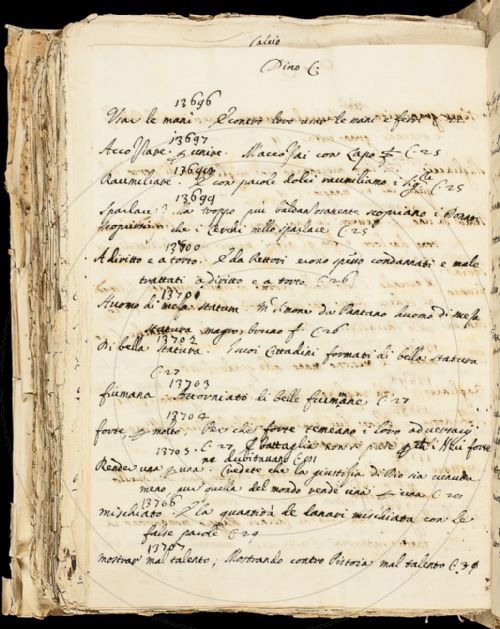 Calcio
Dino C:
13696
Usar le mani. E contro loro usar le mani e ferri C 25
13697
Accostare. p unire. M'accostai con Lapo C 25
13698
Raumiliare. E con parole dolci raumiliamo i C 25
13699
Sparlare. Ma troppo piu baldanzosamente scopriano i Donati
scoprire che i Cerchi nello sparlare C 25
13700
A diritto e a torto. E da Rettori erono spesso condannati e male
trattati a diritto e a torto. C 26
13701
Huomo di meza statura. Simone da Pantano huomo di meza
statura magro, bruno C 26
13702
Di bella statura. I suoi Cittadini formati di bella statura
C 27
13703
fiumana Attorniato di belle fiumane C 27
13704
forte, p molto. Perche forte temeano i loro adversarij
13705. C. 27 E battaglia non si forte
ne dubitavano C
Render una p una. Vedete che la giustitia di Dio sia venuta
meno, pur quella del mondo rende una p una C 201
13706
mischiato. E la quantità de danari mischiata con le
false parole C 29
13707
mostrar mal talento; Mostrando contro Pistoia mal talento C. 30